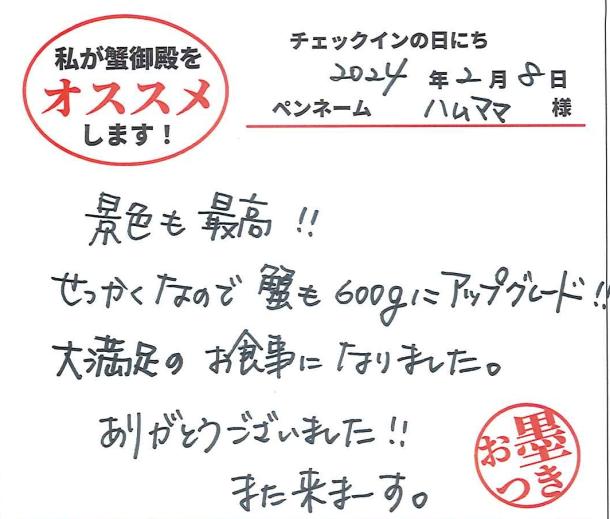 私が蟹御殿を
オススメ
します！
チェックインの日にち
2024年2月8日
ペンネーム ハムママ 様
景色も最高!!
せっかくなので蟹も600gにアップグレード!!
大満足のお食事になりました。
ありがとうございました!!
また来まーす。
お墨つき